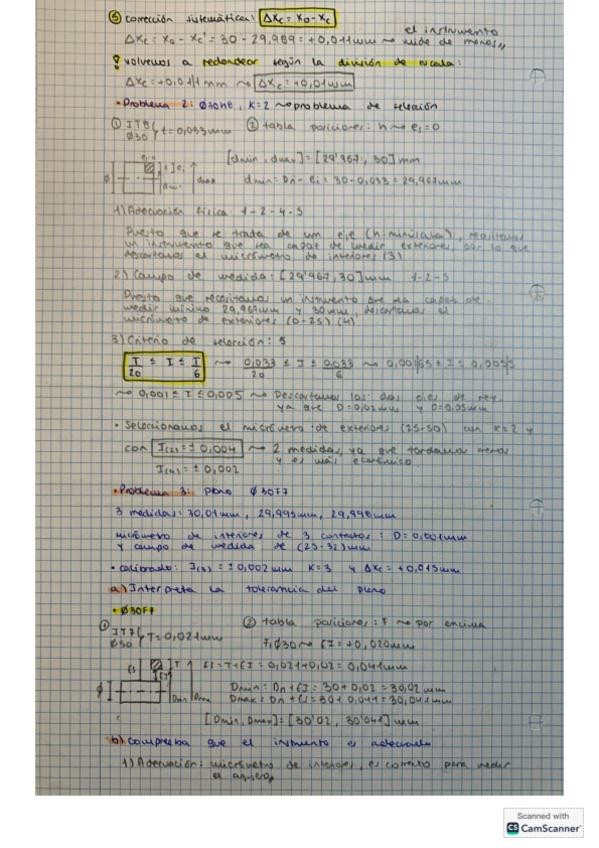 ⑤ corrección sistemática: ΔXc = X0 - Xc
ΔXc = X0 - Xc = 30 - 29,989 = +0,011mm ~> el instrumento mide de menos,,
! volvemos a redondear según la división de escala:
ΔXc = +0,011 mm ~> ΔXc = +0,01mm
• Problema 2: Ø30h8, K=2 ~> problema de selección
① IT8/Ø30 t = 0,033mm ② tabla posiciones: h ~> es = 0
[dmin, dmax] = [29'967, 30] mm
dmin = Dn - ei = 30 - 0,033 = 29,967mm
1) Adecuación física: 1-2-4-5
Puesto que se trata de un eje (h minúscula), necesitamos
un instrumento que sea capaz de medir exteriores, por lo que
descartamos el micrómetro de interiores (3)
2) Campo de medida: [29'967, 30] mm 1-2-5
Puesto que necesitamos un instrumento que sea capaz de
medir mínimo 29,967mm y 30mm, descartamos el
micrómetro de exteriores (0-25) (4)
3) Criterio de selección: 5
T/20 ≤ I ≤ T/6 ~> 0,033/20 ≤ I ≤ 0,033/6 ~> 0,00165 ≤ I ≤ 0,0055
~> 0,001 ≤ I ≤ 0,005 ~> Descartamos los dos pies de rey,
ya que D=0,02mm y D=0,05mm
• Seleccionamos el micrómetro de exteriores (25-50) con K=2 y
con I(2) = ± 0,004 ~> 2 medidas, ya que tardamos menos
y es más económico
= ± 0,002
• Problema 3: plano Ø30F7
3 medidas: 30,01mm, 29,995mm, 29,998mm
micrómetro de interiores de 3 contactos: D = 0,001mm
y campo de medida de (25-32)mm
• calibrado: I(3) = ± 0,002mm K=3 y ΔXc = +0,015mm
a) Interpreta la tolerancia del plano
• Ø30F7
① IT7/Ø30 T = 0,021mm ② tabla posiciones: F ~> por encima
F, Ø30 ~> EI = +0,020mm
ES = T + EI = 0,021 + 0,02 = 0,041mm
Dmin = Dn + EI = 30 + 0,02 = 30,02 mm
Dmax = Dn + ES = 30 + 0,041 = 30,041mm
[Dmin, Dmax] = [30'02, 30'041] mm
b) Comprueba que el instrumento es adecuado
1) Adecuación: micrómetro de interiores, es correcto para medir
el agujero,
Scanned with
CS CamScanner